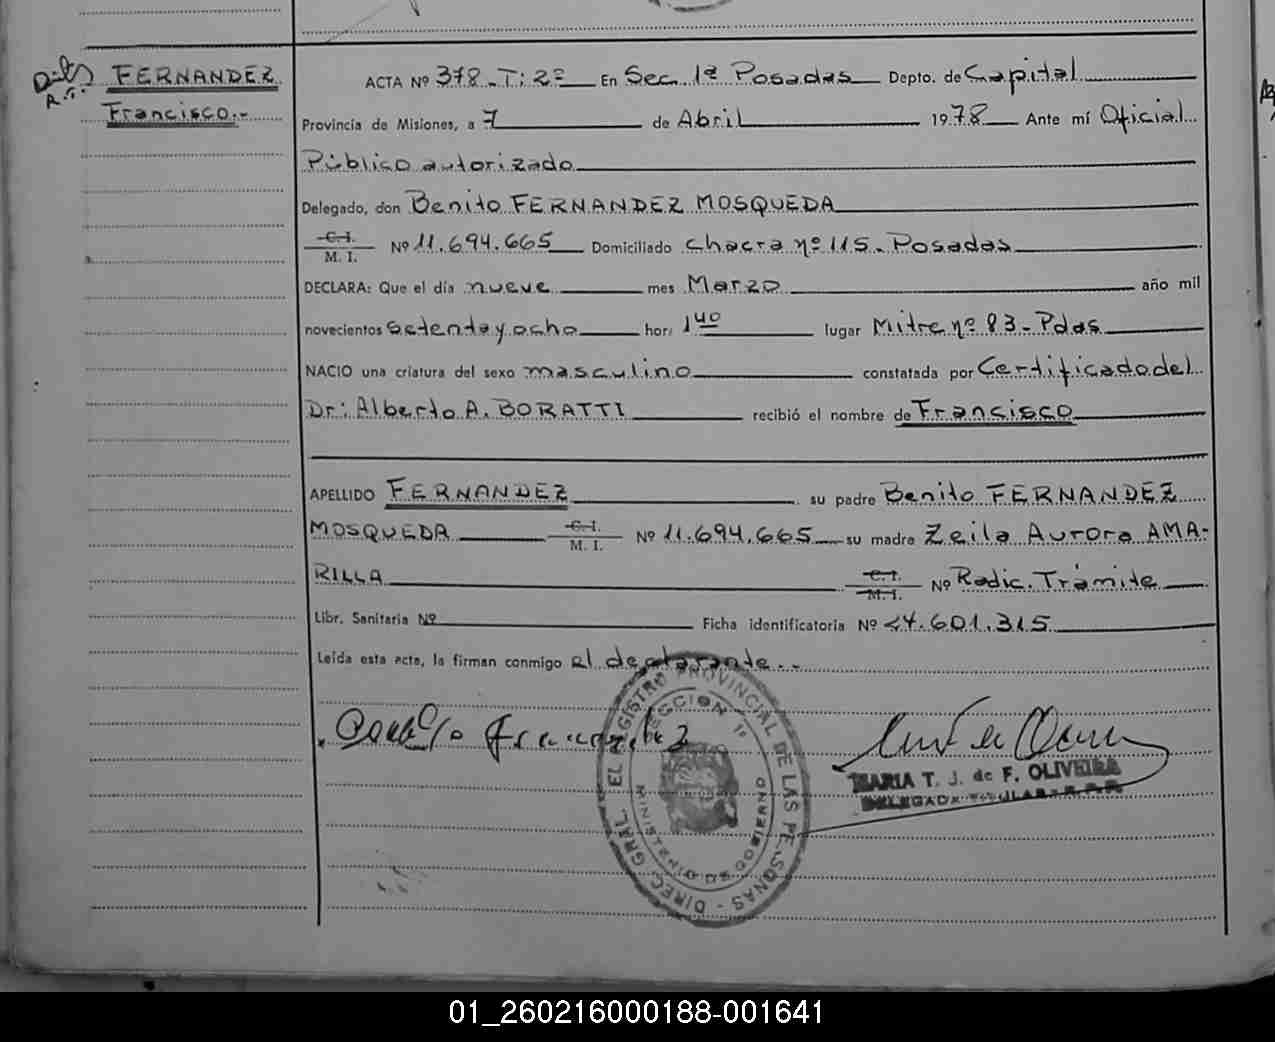 FERNANDEZ
Francisco.-
ACTA Nº 378.-T: 2º En Sec. 1ª Posadas Depto. de Capital
Provincia de Misiones, a 7 de Abril 1978 Ante mí Oficial
Público autorizado
Delegado, don Benito FERNANDEZ MOSQUEDA
C.I.
M. I. Nº 11.694.665 Domiciliado Chacra nº 115.- Posadas
DECLARA: Que el día nueve mes Marzo año mil
novecientos setenta y ocho hora 1 40 lugar Mitre nº 83 - Pdas
NACIO una criatura del sexo masculino constatada por Certificado del
Dr: Alberto A. BORATTI recibió el nombre de Francisco
APELLIDO FERNANDEZ su padre Benito FERNANDEZ
MOSQUEDA C.I.
M. I. Nº 11.694.665 su madre Zeila Aurora AMA-
RILLA C.I.
M.I. Nº Radic. Trámite
Libr. Sanitaria Nº Ficha identificatoria Nº 24.601.315
Leída esta acta, la firman conmigo el declarante.-
DIREC. GRAL. EL REGISTRO PROVINCIAL DE LAS PERSONAS
SECCION 1a
MINISTERIO DE GOBIERNO
MARIA T. J. de F. OLIVEIRA
DELEGADA TITULAR - R. P. P.
01_260216000188-001641